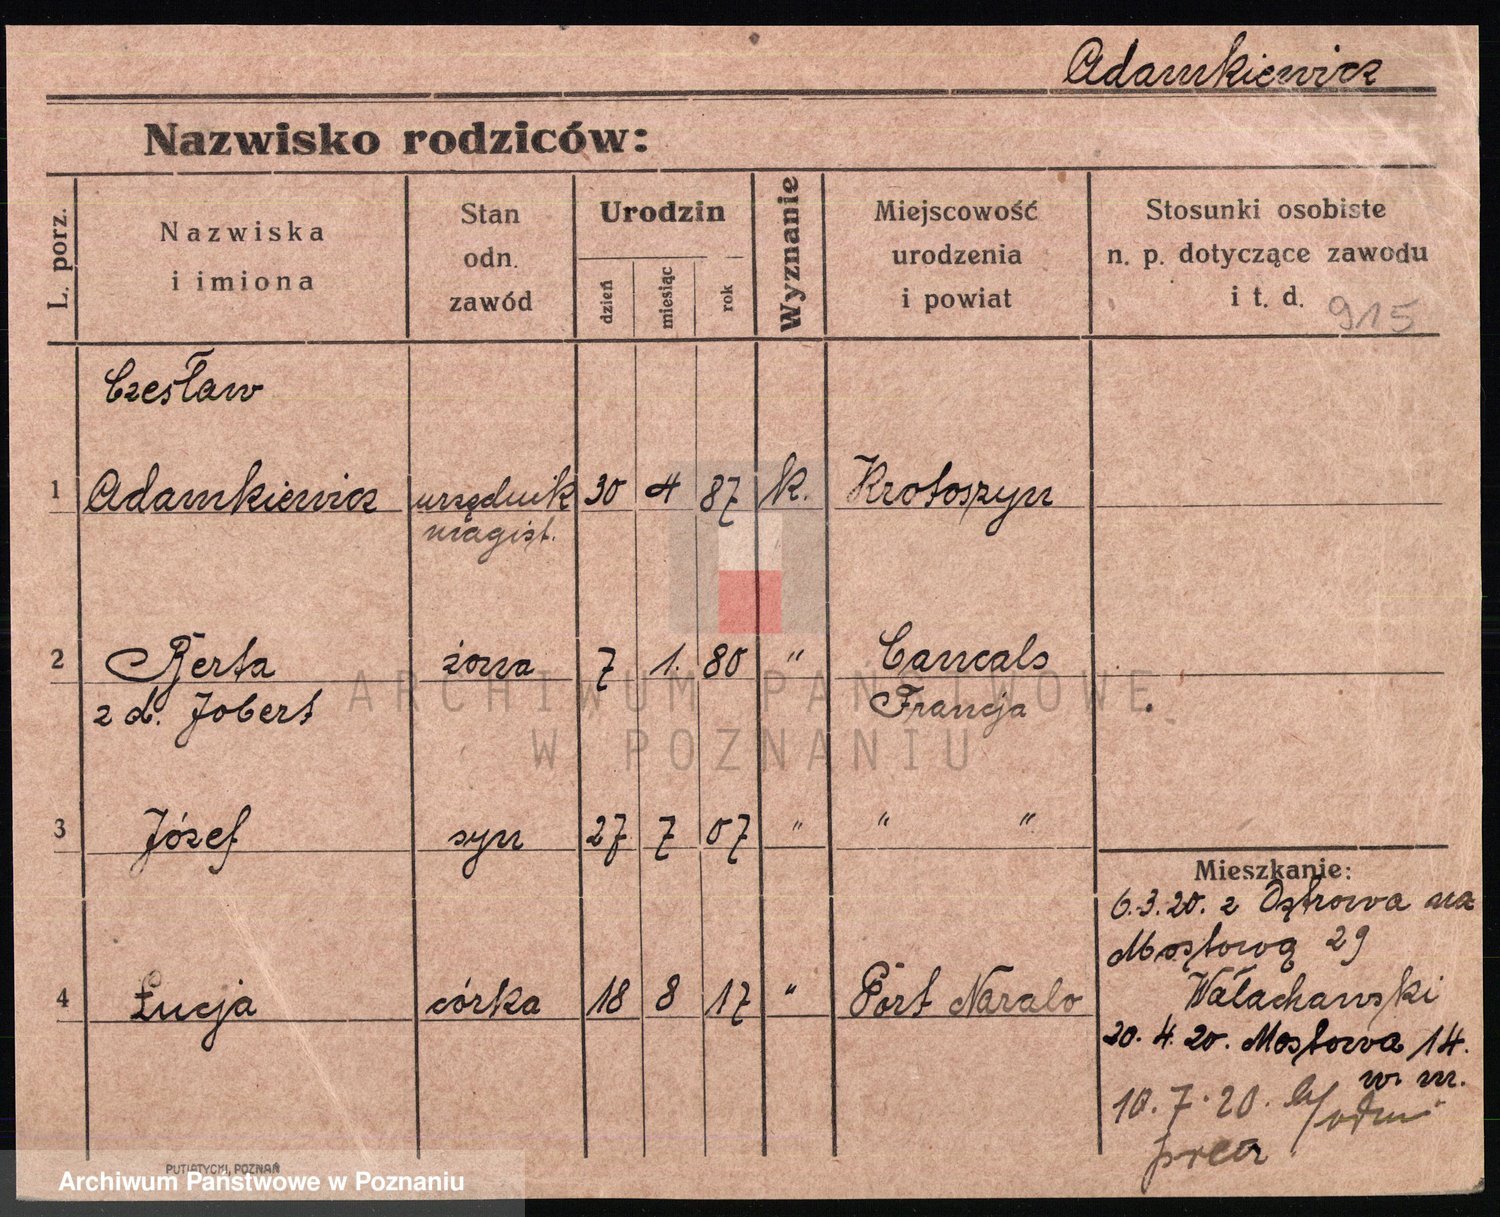 Adamkiewicz
Nazwisko rodziców:
L. porz.
Nazwiska
i imiona
Stan
odn.
zawód
Urodzin
dzień
miesiąc
rok
Wyznanie
Miejscowość
urodzenia
i powiat
Stosunki osobiste
n. p. dotyczące zawodu
i t. d.
915
Czesław
1 Adamkiewicz urzędnik 30 4 87 k. Krotoszyn
magist.
2 Berta żona 7 1. 80 " Cancals
z d. Jobert Francja
3 Józef syn 27 7 07 " " "
4 Łucja córka 18 8 17 " Port Naralo
Mieszkanie:
6.3.20. z Ostrowa na
Mostową 29
Wałachowski
20.4.20. Mostowa 14.
w m.
10.7.20.
ARCHIWUM PAŃSTWOWE
W POZNANIU
PUTIATYCKI, POZNAŃ
Archiwum Państwowe w Poznaniu